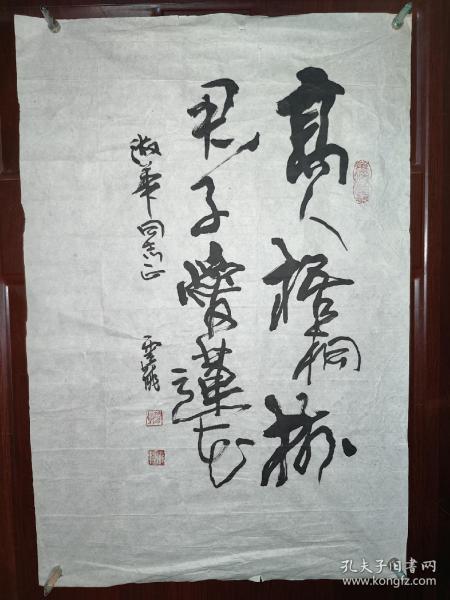 高人梧桐
君子愛蓮花
淑華同志正
孔夫子旧书网
www.kongfz.com